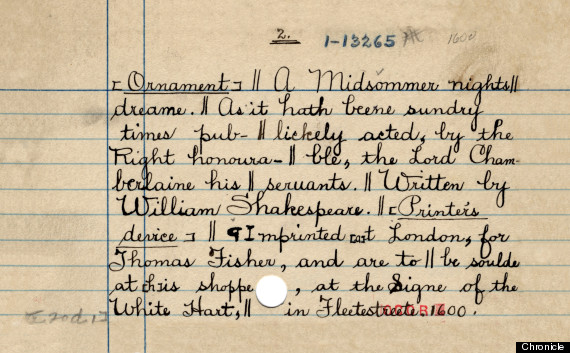 2.
1-13265 1600
[Ornament] || A Midsommer nights ||
dreame. || As it hath beene sundry
times pub- || lickely acted, by the
Right honoura- || ble, the Lord Cham-
berlaine his || seruants. || Written by
William Shakespeare. || [Printer's
device] || ¶ Imprinted at London, for
Thomas Fisher, and are to || be soulde
at his shoppe , at the Signe of the
White Hart, || in Fleetestreete. 1600.
Chronicle